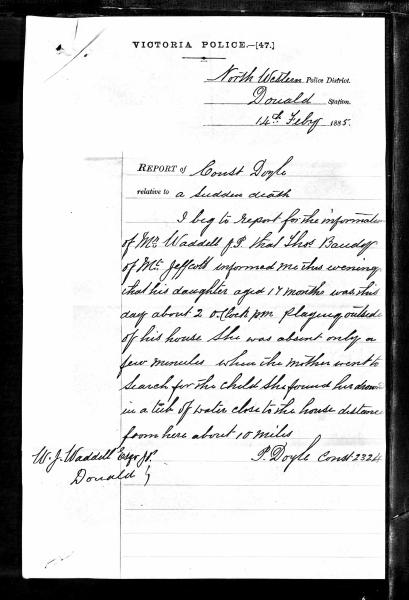 VICTORIA POLICE.—[47.]
North Western Police District.
Donald Station.
14th Feby 1885.
REPORT of Const Doyle
relative to a sudden death
I beg to report for the information
of Mr. Waddell J.P. that Thos.
of Mt. Jeffcott informed me this evening
that his daughter aged 17 months was this
day about 2 o.Clock pm Playing outside
of his house She was absent only a
few minutes when the mother went to
search for the child She found her drown
in a tub of water close to the house distance
from here about 10 miles
P. Doyle Const 2324
W. J. Waddell Esqr J.P.
Donald